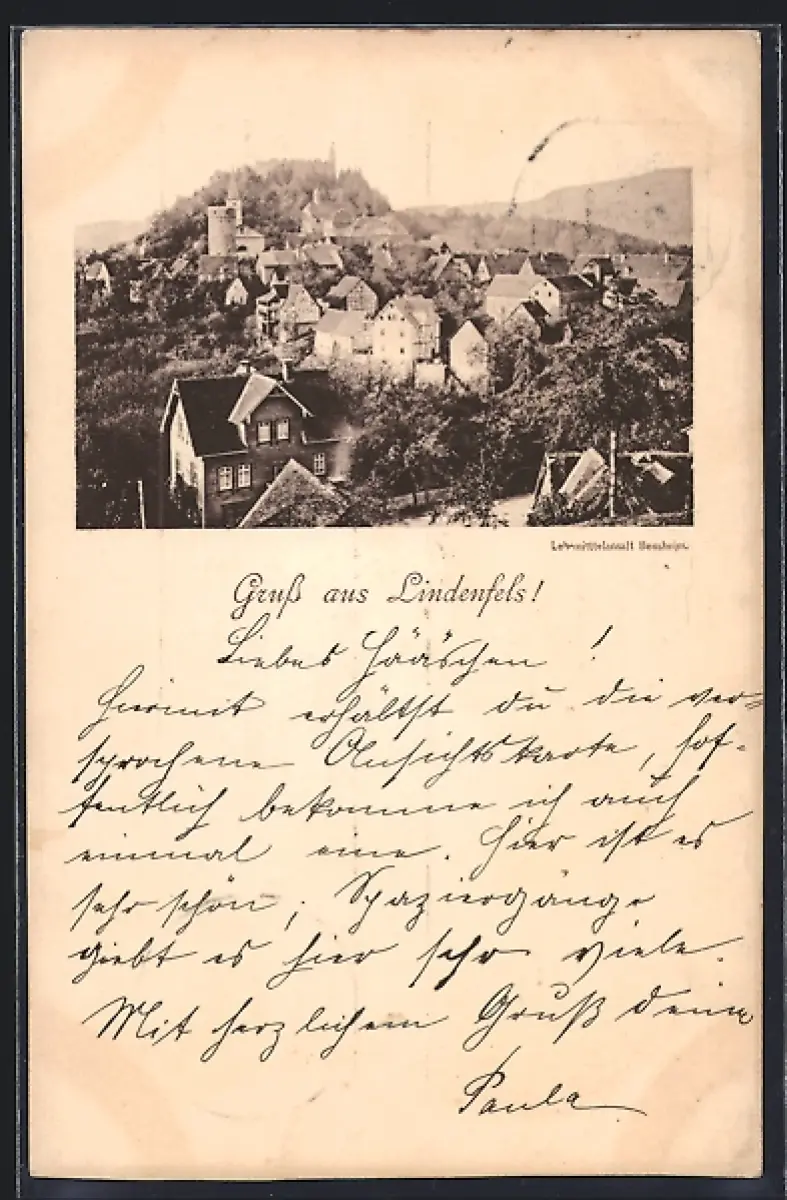 Lehrmittelanstalt Bensheim.
Gruß aus Lindenfels!
Liebes Hääschen !
Hiermit erhältst du die ver-
sprochene Ansichtskarte, hof-
fentlich bekomme ich auch
einmal eine. Hier ist es
sehr schön; Spaziergänge
giebt es hier sehr viele.
Mit herzlichem Gruß deine
Paula